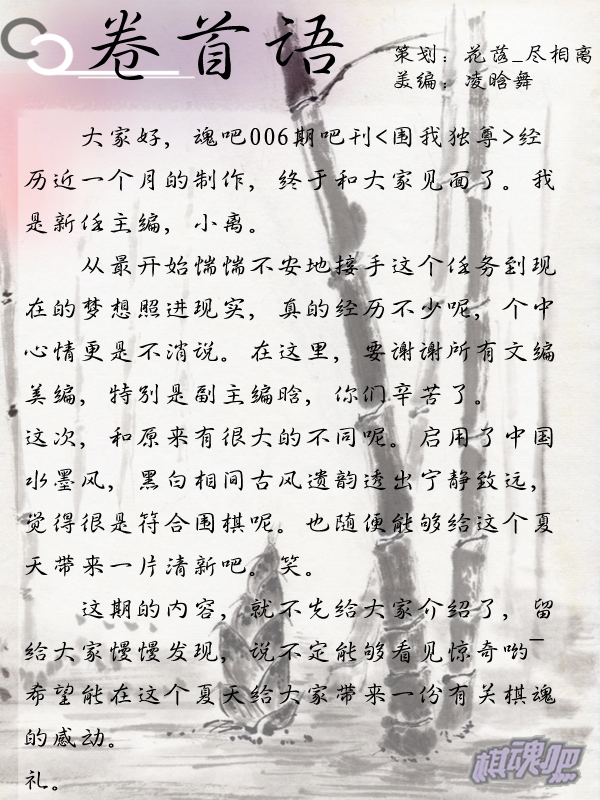 卷首语
策划：花落_尽相离
美编：凌晗舞
大家好，魂吧006期吧刊<围我独尊>经
历近一个月的制作，终于和大家见面了。我
是新任主编，小离。
从最开始惴惴不安地接手这个任务到现
在的梦想照进现实，真的经历不少呢，个中
心情更是不消说。在这里，要谢谢所有文编
美编，特别是副主编晗，你们辛苦了。
这次，和原来有很大的不同呢。启用了中国
水墨风，黑白相间古风遗韵透出宁静致远，
觉得很是符合围棋呢。也随便能够给这个夏
天带来一片清新吧。笑。
这期的内容，就不先给大家介绍了，留
给大家慢慢发现，说不定能够看见惊奇哟~
希望能在这个夏天给大家带来一份有关棋魂
的感动。
礼。
棋魂吧